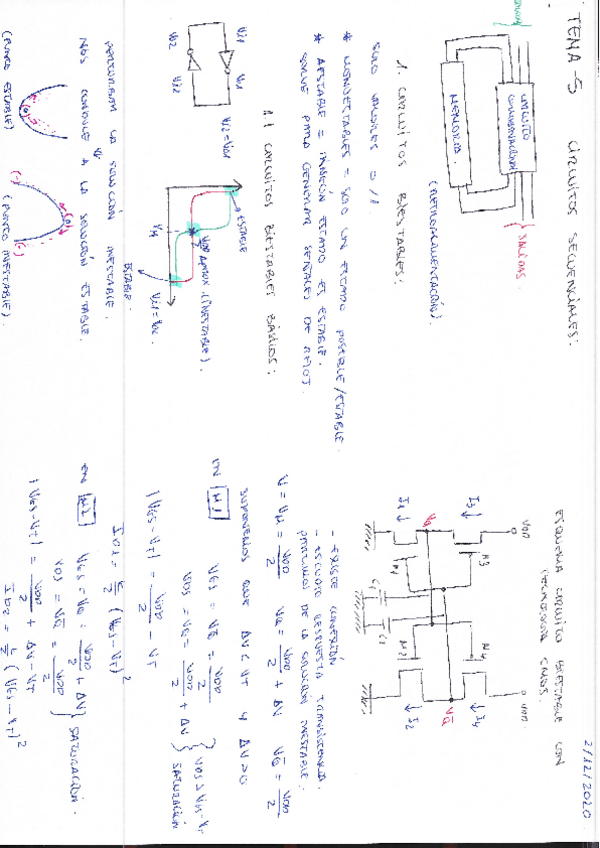 2/12/2020
TEMA-5 CIRCUITOS SECUENCIALES:
CIRCUITO
COMBINACIONAL
SALIDAS
MEMORIA
(RETROALIMENTACIÓN).
1. CIRCUITOS BIESTABLES:
SOLO VALORES 0/1.
* MONOESTABLES = SOLO UN ESTADO POSIBLE/ESTABLE
* AESTABLE = NINGÚN ESTADO ES ESTABLE.
SIRVE PARA GENERAR SEÑALES DE RELOJ.
1.1 CIRCUITOS BIESTABLES BÁSICOS:
Vi1
Vo1
Vi2=Vo1
Vo2
Vi2
ESTABLE
(INESTABLE).
ESTABLE
Vi1=Vo2
PERTURBAR LA SOLUCIÓN INESTABLE
NOS CONDUCE A LA SOLUCIÓN ESTABLE.
(PUNTO ESTABLE)
(PUNTO INESTABLE).
ESQUEMA CIRCUITO BIESTABLE CON
TECNOLOGÍA CMOS.
VDD
VDD
I3
M3
M4
I4
VQ
VQ̅
I1
M1
M2
I2
- EXISTE CONEXIÓN
- ESTUDIO RESPUESTA TRANSISTORIA.
PARTIMOS DE LA SOLUCIÓN INESTABLE.
V = VM = VDD/2 VQ = VDD/2 + ΔV VQ̅ = VDD/2
SUPONEMOS QUE ΔV < VT Y ΔV>0
EN M1 VGS = VQ̅ = VDD/2
VDS = VQ = VDD/2 + ΔV } VDS > VGS - VT SATURACIÓN
|VGS-VT| = VDD/2 - VT
ID1 = K/2 (VGS-VT)²
EN M2 VGS = VQ = VDD/2 + ΔV
VDS = VQ̅ = VDD/2 } SATURACIÓN.
|VGS-VT| = VDD/2 + ΔV - VT
ID2 = K/2 (VGS-VT)²